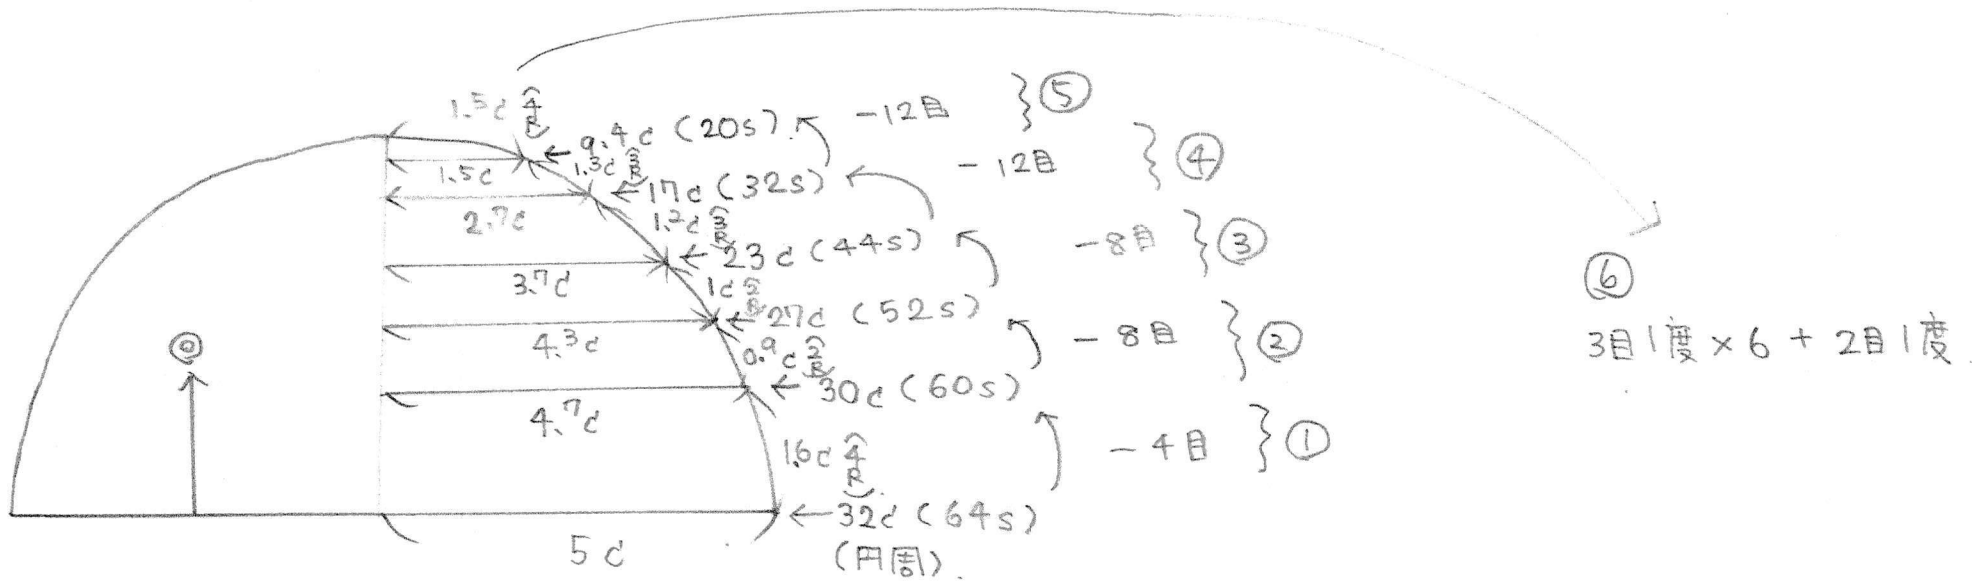 1.5c (4R)
9.4c (20s) -12目 ⑤
1.5c 1.3c (3R)
17c (32s) -12目 ④
2.7c 1.2c (3R)
23c (44s) -8目 ③
3.7c 1c (2R)
27c (52s) -8目 ②
4.3c 0.9c (2R)
30c (60s) -4目 ①
4.7c
1.6c (4R)
32c (64s)
(円周)
5c
⑥
3目1度×6+2目1度